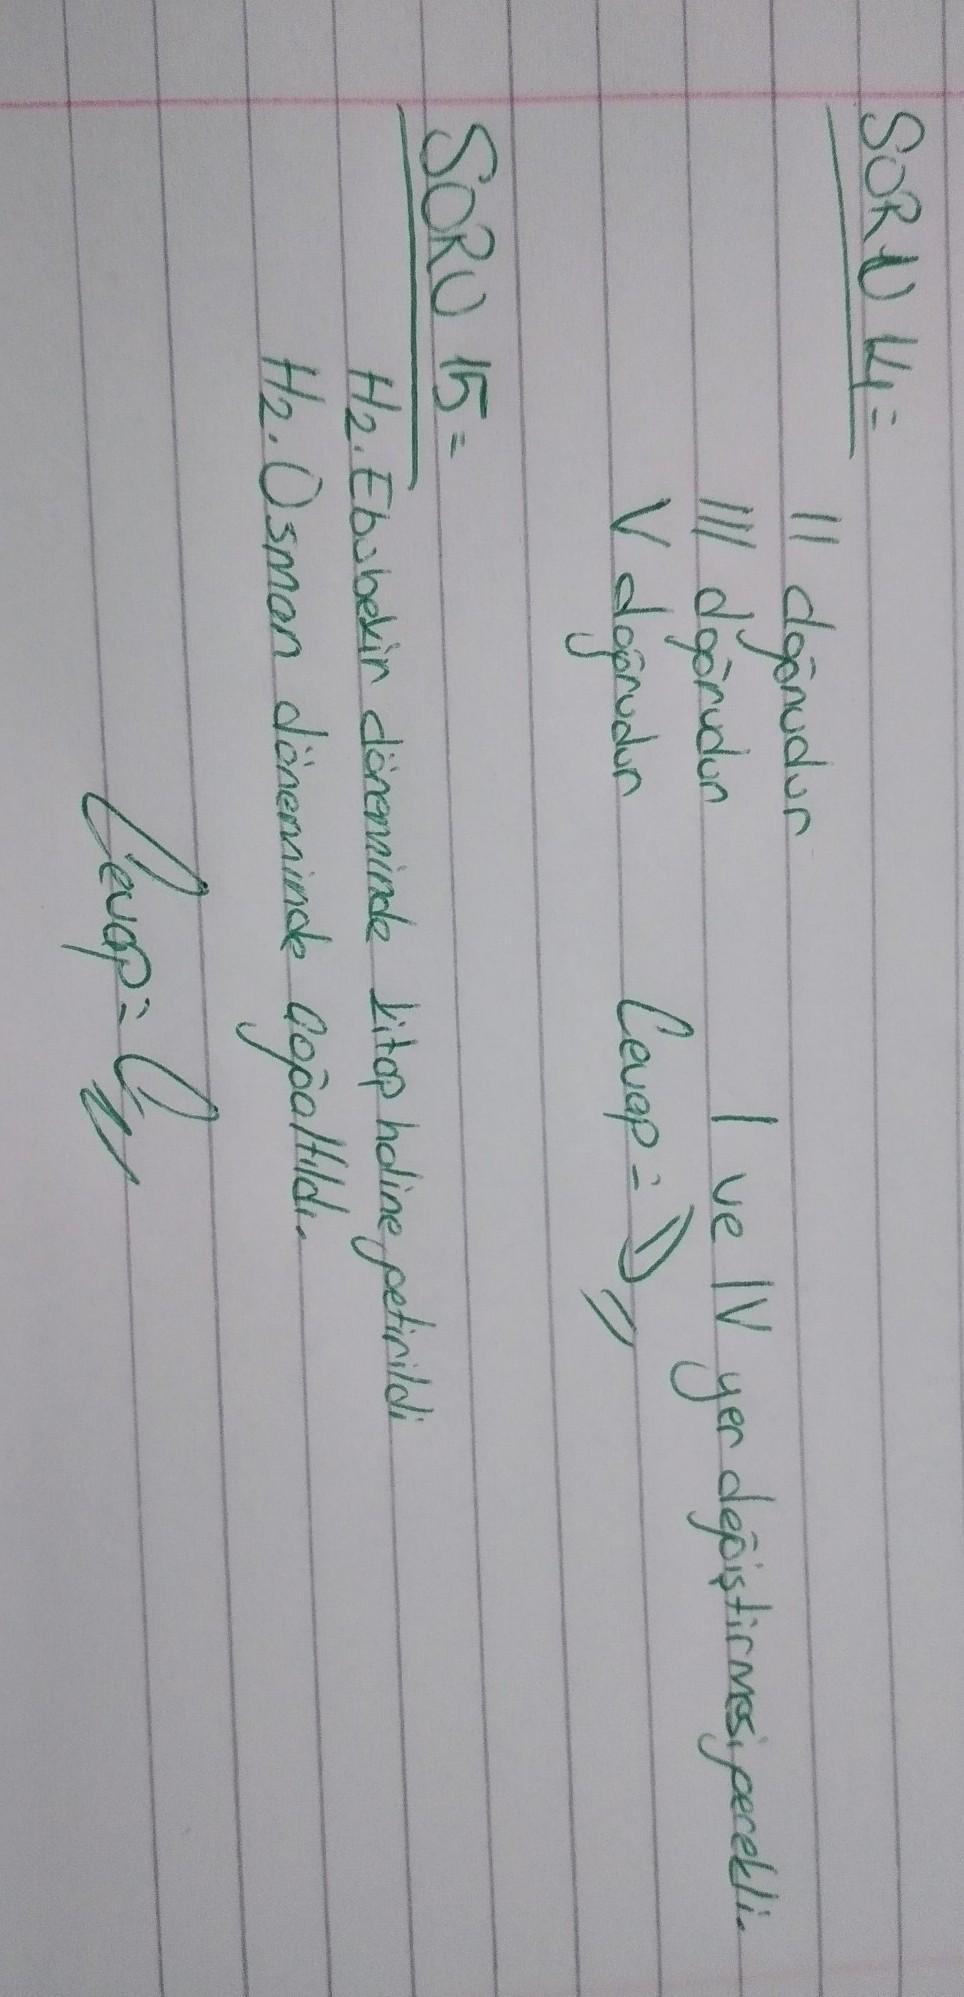 SORU 14=
II doğrudur
III doğrudur I ve IV yer değiştirmesi gerekli.
V doğrudur Cevap= D
SORU 15=
Hz. Ebubekir döneminde kitap haline getirildi
Hz. Osman döneminde çoğaltıldı.
Cevap= C